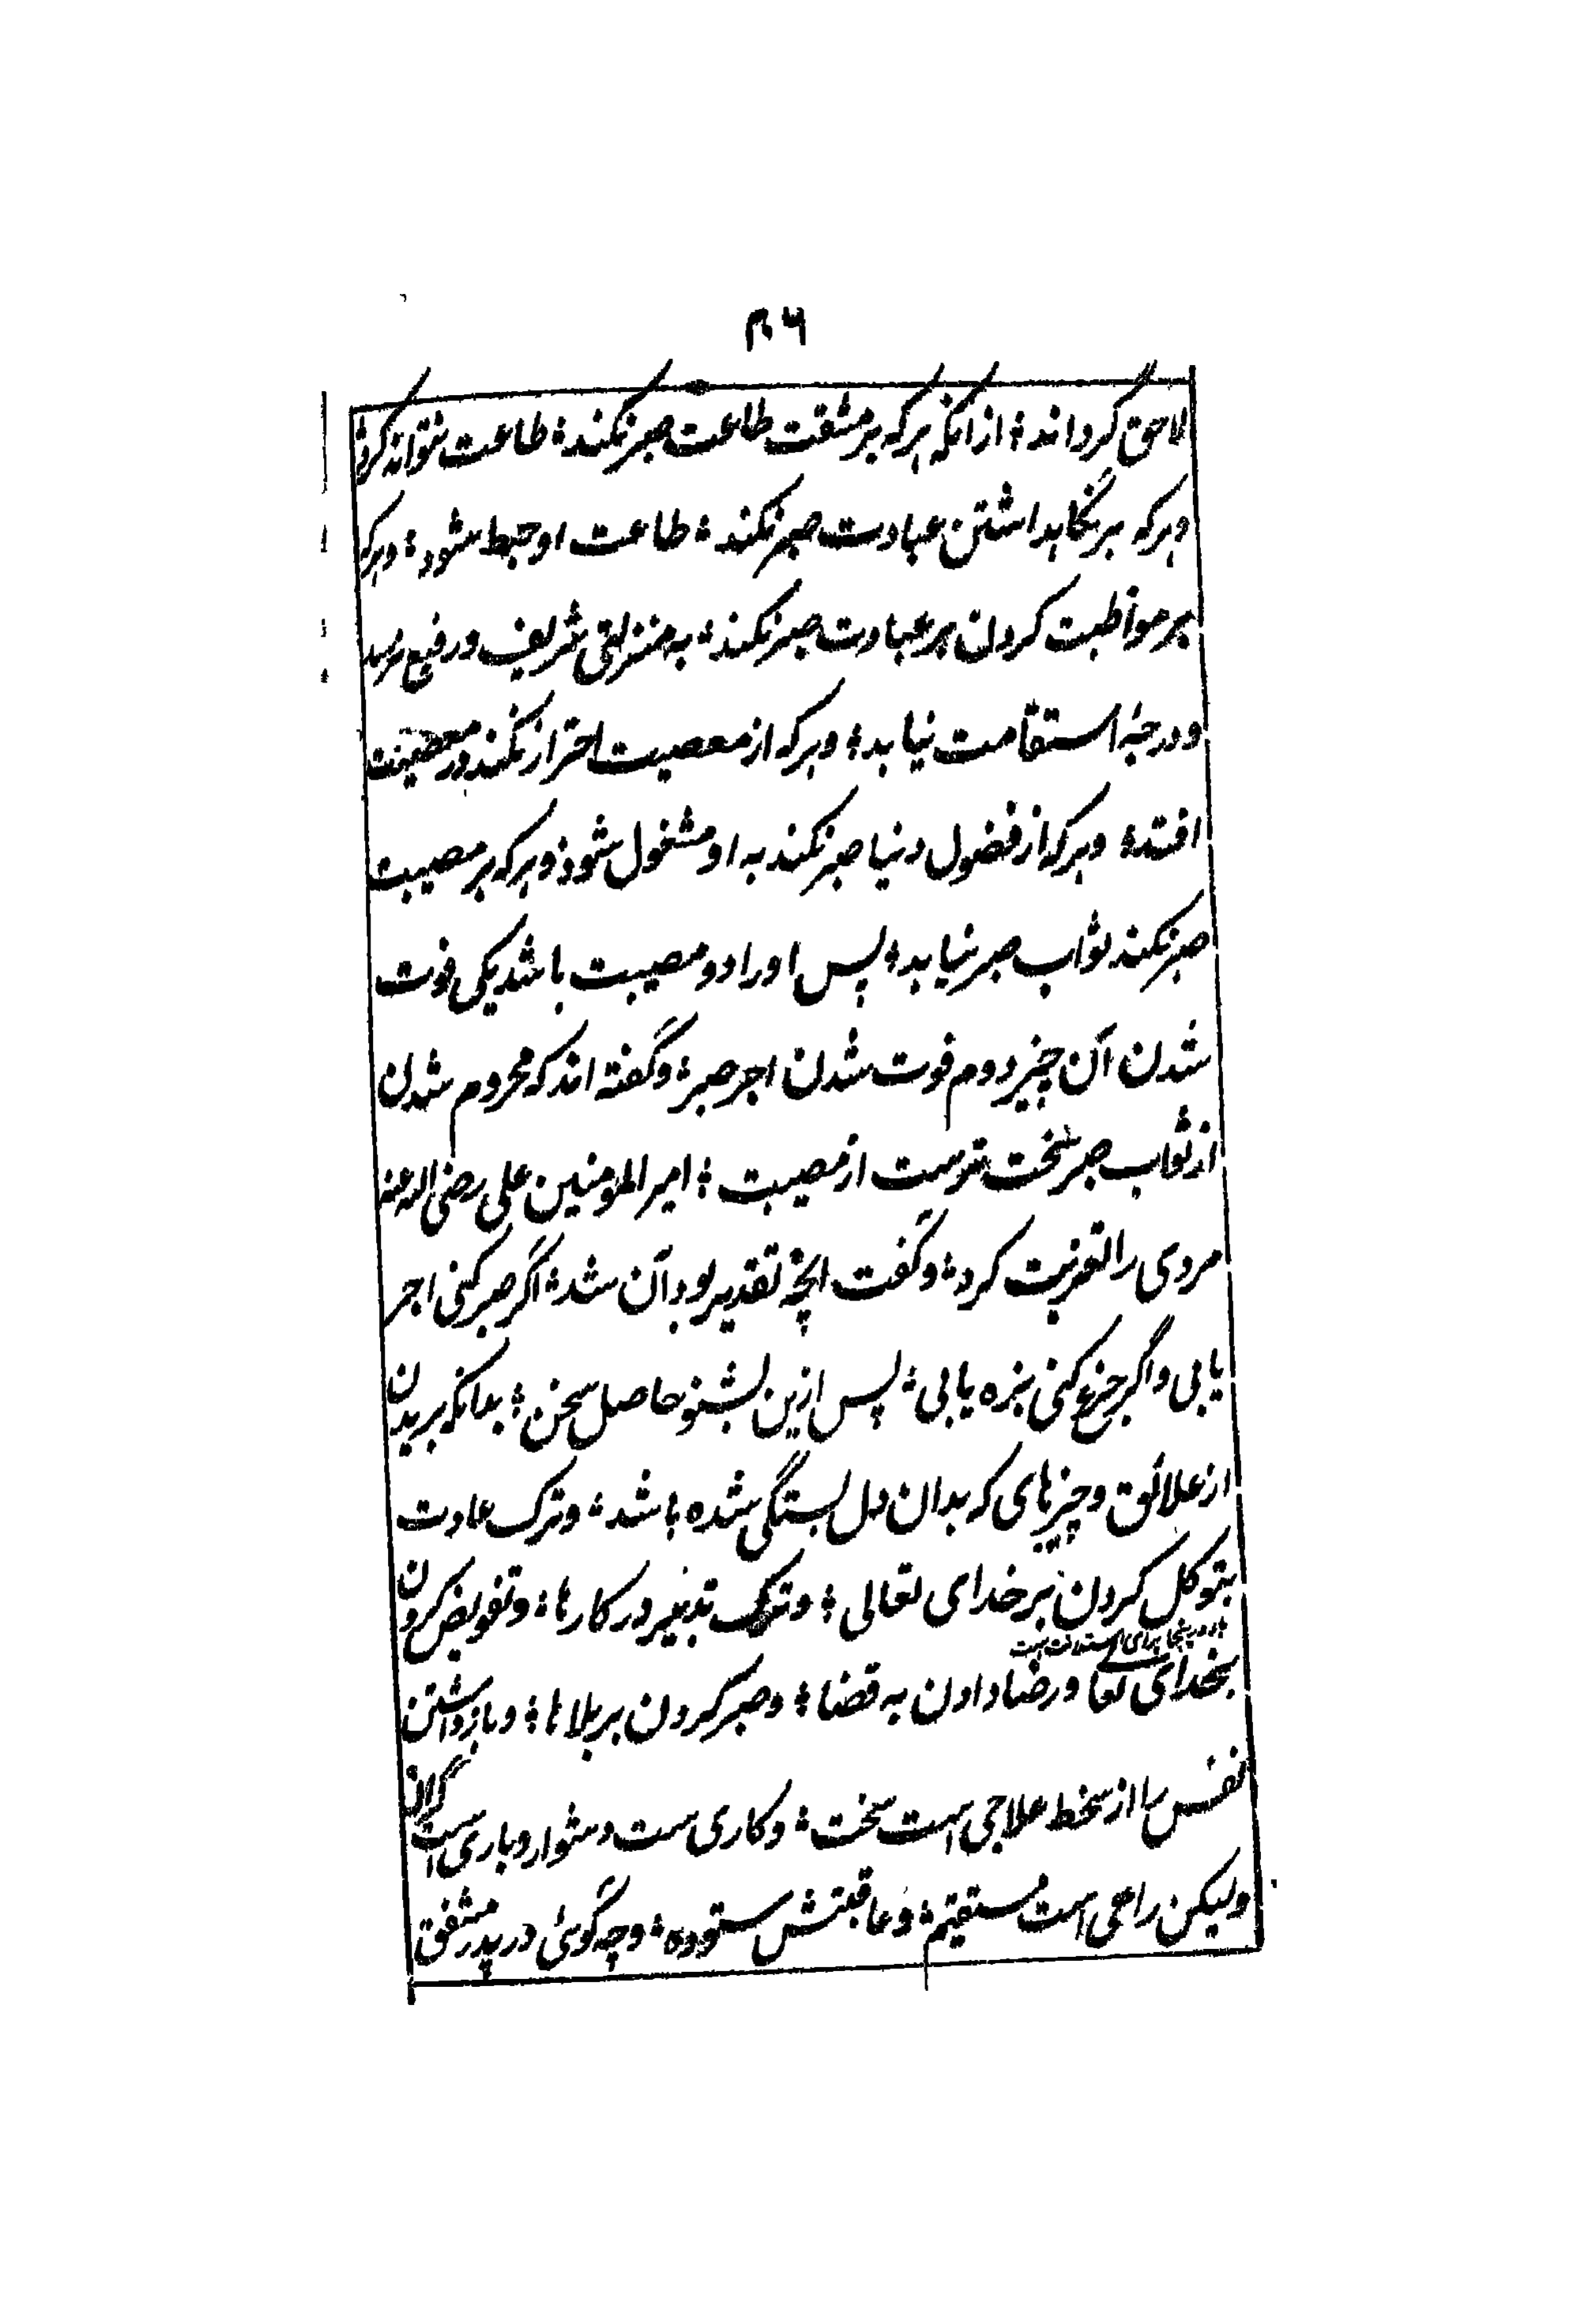 لاحق گرداند؛ ازانکه هرکه بر مشقت طاعت صبر نکند؛ طاعت نتواند کرد؛
وهرکه بر نگاهداشتن عبادت صبر نکند؛ طاعت او حبط شود؛ وهرکه
بر مواظبت کردن بر عبادت صبر نکند؛ به منزلتی شریف و رفیع نرسد
و درجهٔ استقامت نیابد؛ وهرکه از معصیت احتراز نکند در معصیت
افتد؛ وهرکه از فضول دنیا صبر نکند به او مشغول شود؛ وهرکه بر مصیبت
صبر نکند ثواب صبر نیابد؛ پس او را دو مصیبت باشد یکی فوت
شدن آن چیز دوم فوت شدن اجر صبر؛ وگفته اند که محروم شدن
از ثواب صبر سخت ترست از مصیبت؛ امیر المومنین علی رضی الله عنه
مردی را تعزیت کرد؛ وگفت انچه تقدیر بود آن شد؛ اگر صبر کنی اجر
یابی و اگر جزع کنی بزه یابی؛ پس ازین بشنو حاصل سخن؛ بدانکه بریدن
از علائق و چیزهای که بدان دل بستگی شده باشد؛ و ترک عادت
بتوکل کردن بر خدای تعالی؛ و ترک تدبیر در کارها؛ و تفویض کردن
بخدای تعالے و رضا دادن به قضا؛ و صبر کردن بر بلاها؛ و بازداشتن
نفس را از سخط علاجی است سخت؛ و کاری ست دشوار و باری است گران
ولیکن راهی است مستقیم؛ و عاقبتش ستوده؛ و چه گوئی در پدر مشفق